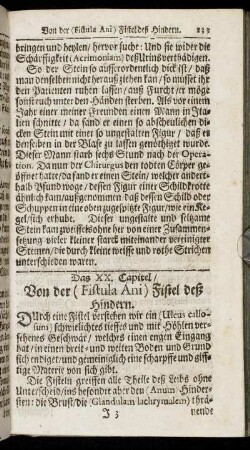 Von der (Fistula Ani) Fistel deß Hindern. 133
bringen und heylen / hervor suche: Und sie wider die
Schärffigkeit (Acrimoniam) deß Urins verthädigen.
So der Stein so ausserordentlich dick ist / daß
man denselben nicht heraus ziehen kan / so müsset ihr
den Patienten ruhen lassen / auß Furcht / er möge
sonst euch unter den Händen sterben. Als vor einem
Jahr einer meiner Freunden einen Mann in Ita-
lien schnitte / da fand er einen so abscheulichen di-
cken Stein mit einer so ungestalten Figur / daß er
denselben in der Blase zu lassen gerathen wurde.
Dieser Mann starb sechs Stund nach der Opera-
tion. Da nun der Chirurgus den todten Cörper ge-
öffnet hatte / da fand er einen Stein / welcher andert-
halb Pfund woge / dessen Figur einer Schildkrotte
ähnlich kam / außgenommen / daß dessen Schild oder
Schuppen in eine oben zugespitzte Figur / wie ein Ke-
gel / sich erhub. Dieser ungestalte und selzame
Stein kam zweiffelsohne her von einer Zusammen-
setzung vieler kleiner starck miteinander vereinigter
Steinen / die durch kleine weisse und rothe Strichen
unterschieden waren.
Das XX. Capitel /
Von der (Fistula Ani) Fistel deß
Hindern.
DUrch eine Fistel verstehen wir ein (Ulcus callo-
sum) schwielichtes tieffes und mit Höhlen ver-
sehenes Geschwär / welches einen engen Eingang
hat / in einen breit- und weiten Boden und Grund
sich endiget / und gemeiniglich eine scharpffe und giff-
tige Materie von sich gibt.
Die Fisteln greiffen alle Theile deß Leibs ohne
Unterscheid / ins besonder aber den (Anum) Hinder-
sten: die Brust / die (Glandulam lachrymalem) thrä-
J 3 nende